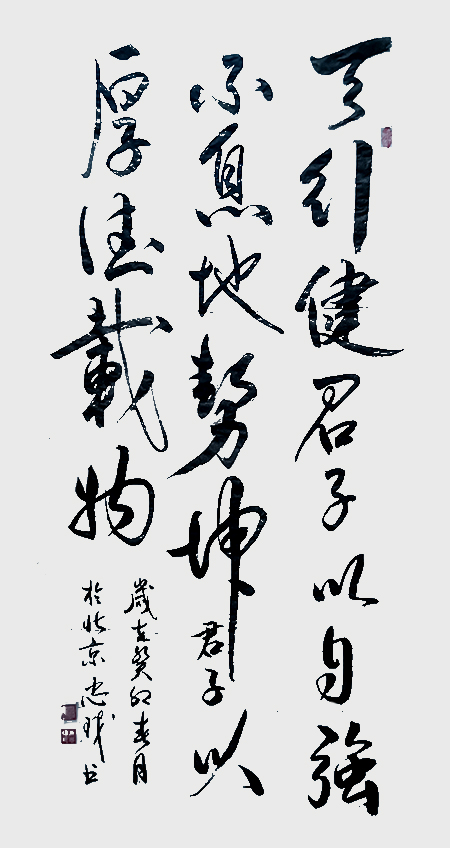 天行健君子以自強
不息地勢坤君子以
厚德載物
歲在癸卯春月
於北京忠哉書